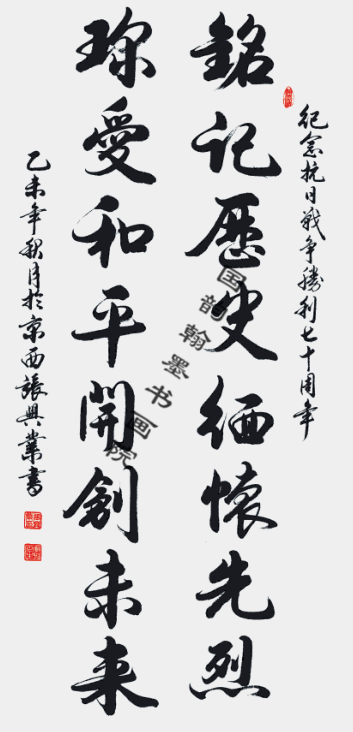 纪念抗日戰争勝利七十周年
銘记歷史缅懷先烈
珎愛和平開創未来
乙未年秋月於京西張興業書
国韵翰墨书画院